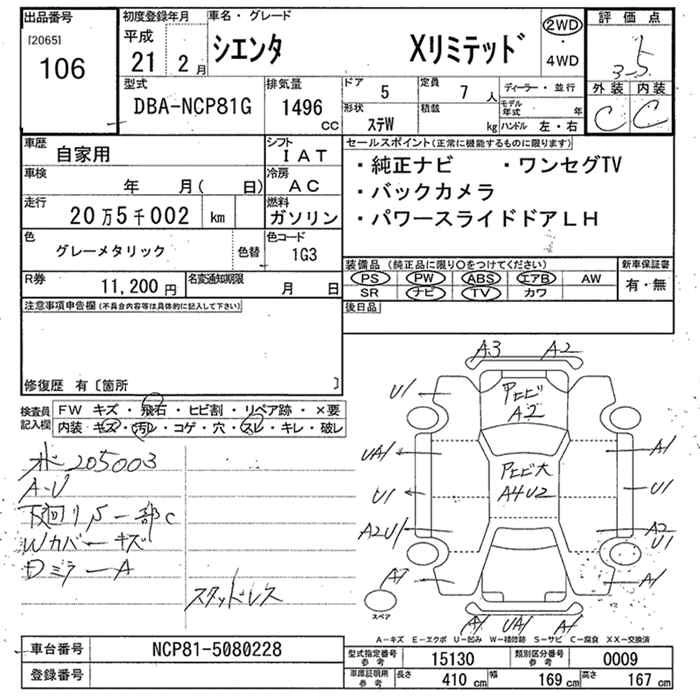 出品番号
[2065]
106
初度登録年月
平成
21 2月
車名・グレード
シエンタ Xリミテッド
2WD
・
4WD
評価点
3-5
外装 内装
C C
型式
DBA-NCP81G
排気量
1496
CC
ドア 5
定員 7 人
ディーラー・並行
形状 ステW
積載 kg
モデル年式 年
ハンドル 左・右
車歴
自家用
シフト
IAT
車検
年 月( 日)
冷房
AC
走行
20万5千002 km
燃料
ガソリン
色
グレーメタリック
色替
色コード
1G3
R券
11,200円
名変通知期限
月 日
セールスポイント(正常に機能するものに限ります)
・純正ナビ ・ワンセグTV
・バックカメラ
・パワースライドドアLH
装備品 (純正品に限り○をつけてください)
PS PW ABS エアB AW
SR ナビ TV カワ
新車保証書
有・無
後日品
注意事項申告欄(不具合内容等は具体的に記入して下さい)
修復歴 有〔箇所 〕
検査員
記入欄
FW キズ・飛石・ヒビ割・リペア跡・×要
内装・キズ・汚レ・コゲ・穴・スレ・キレ・破レ
205003
A-U
下回りS一部C
Wカバーキズ
DミラーA
スタッドレス
A3 A2
U1
PヒビA2
UA1
A1
Pヒビ大
A4U2
U1
U1
A2U1
A2
U1
A1
A1 UA1 A1
スペア
A-キズ E-エクボ U-凹み W-補修跡 S-サビ C-腐食 XX-交換済
車台番号
NCP81-5080228
登録番号
型式指定番号
参考
15130
類別区分番号
参考
0009
車庫証明用
参考
長さ 410 cm
幅 169 cm
高さ 167 cm